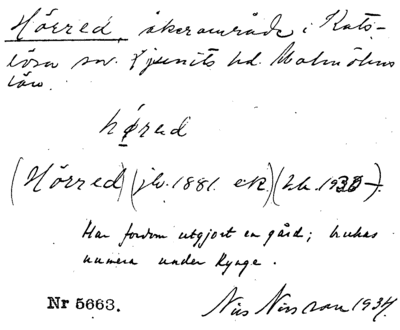 Hörred, åkerområde i Kats-
lösa sn. Ljunits hd. Malmöhus
län.
hǿred
(Hörred) (jb. 1881. ek.) (hk. 1930-).
Har fordom utgjort en gård; brukas
numera under Rynge.
Nr 5663.
Nils Nilsson 1934.